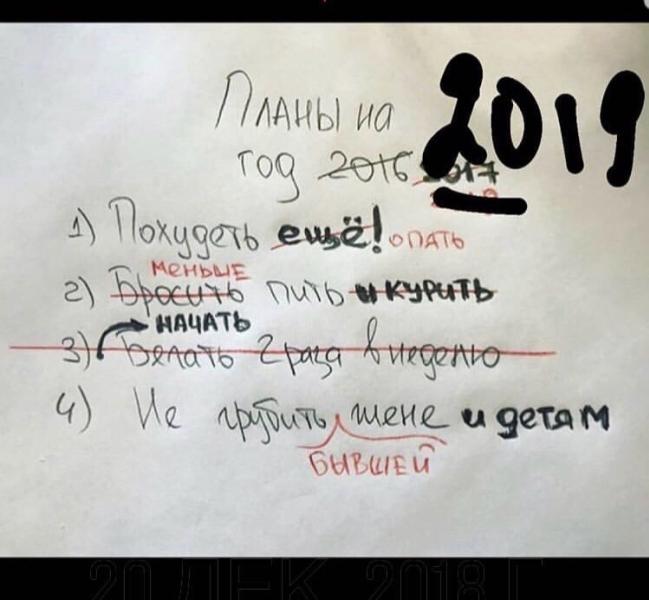 Планы на 2019
год 2016 2017
1) Похудеть ещё! опять
меньше
2) Бросить пить и курить
НАЧАТЬ
3) Бегать 2 раза в неделю
4) Не грубить жене и детям
БЫВШЕЙ
20 ДЕК. 2018 Г.